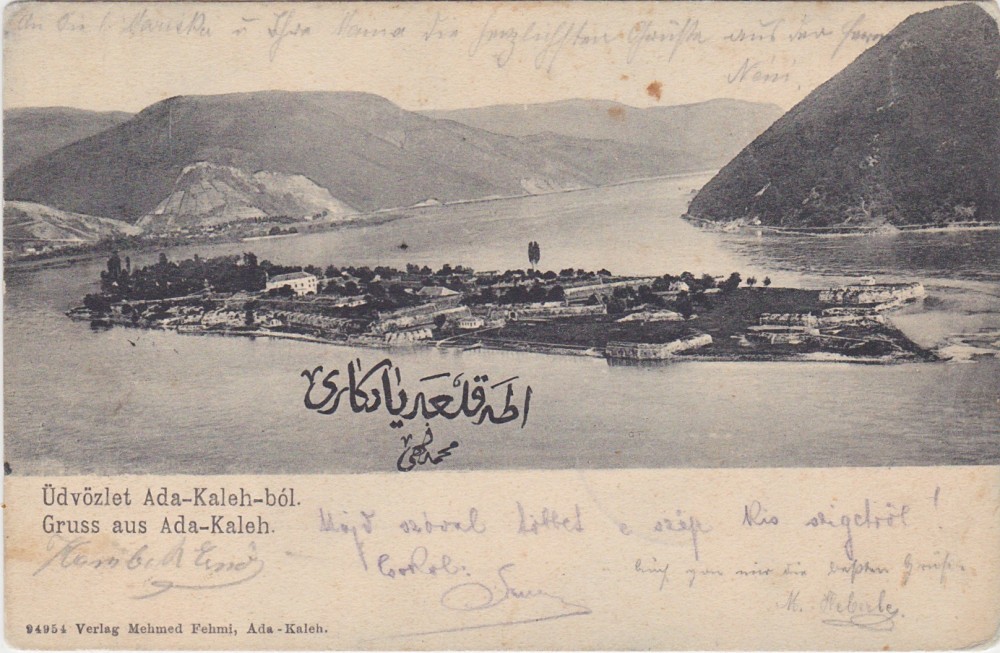 An Sie l. Mariska u Ihre Mama die herzlichsten Grüße aus der
Neni
اطه قلعه یادکاری
محمد فهمی
Üdvözlet Ada-Kaleh-ból.
Gruss aus Ada-Kaleh.
Majd szóval többet e szép kis szigetről!
Ernő
Csókol:
Auch von mir die besten Grüße
M. Heberle
94954 Verlag Mehmed Fehmi, Ada-Kaleh.